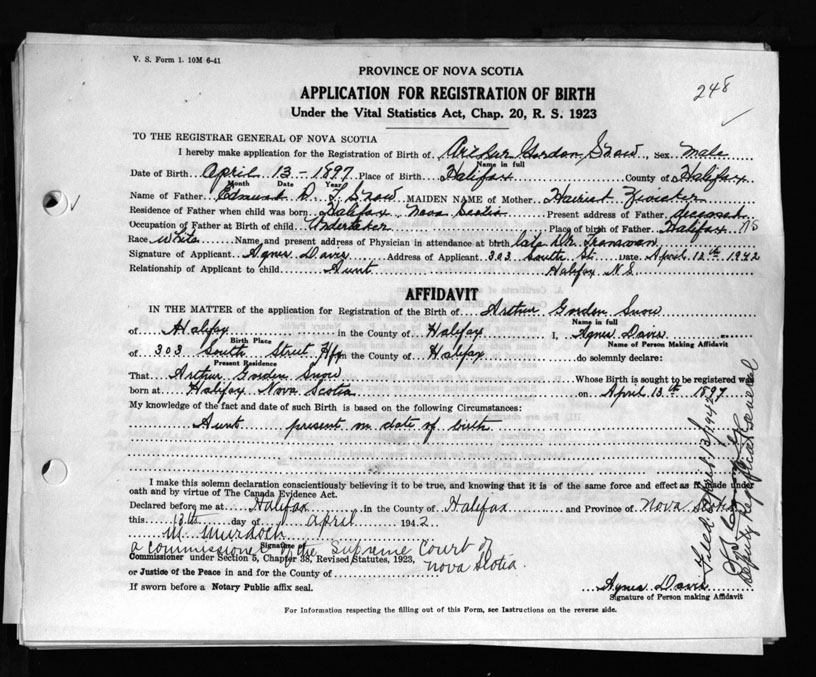 V. S. Form 1. 10M 6-41
PROVINCE OF NOVA SCOTIA
248
APPLICATION FOR REGISTRATION OF BIRTH
Under the Vital Statistics Act, Chap. 20, R. S. 1923
TO THE REGISTRAR GENERAL OF NOVA SCOTIA
I hereby make application for the Registration of Birth of Arthur Gordon Snow, Sex Male
Name in full
Date of Birth April 13 - 1897 Place of Birth Halifax County of Halifax
Month Date Year
Name of Father Edmund D. Snow MAIDEN NAME of Mother Harriet Zwicker
Residence of Father when child was born Halifax Nova Scotia Present address of Father deceased
Occupation of Father at Birth of child Undertaker Place of birth of Father Halifax NS
Race White Name and present address of Physician in attendance at birth late Dr.
Signature of Applicant Agnes Davis Address of Applicant 303 South St. Date April 12th 1942
Relationship of Applicant to child Aunt Halifax N.S.
AFFIDAVIT
IN THE MATTER of the application for Registration of the Birth of Arthur Gordon Snow
Name in full
of Halifax in the County of Halifax I, Agnes Davis
Birth Place Name of Person Making Affidavit
of 303 South Street Hfx in the County of Halifax do solemnly declare:
Present Residence
That Arthur Gordon Snow Whose Birth is sought to be registered was
born at Halifax Nova Scotia on April 13th 1897
My knowledge of the fact and date of such Birth is based on the following Circumstances:
Aunt present on date of birth
I make this solemn declaration conscientiously believing it to be true, and knowing that it is of the same force and effect as if made under
oath and by virtue of The Canada Evidence Act.
Declared before me at Halifax in the County of Halifax and Province of Nova Scotia
this 13th day of April 1942
M. Murdoch
Signature of
a Commissioner of the Supreme Court of
Commissioner under Section 5, Chapter 38, Revised Statutes, 1923,
Nova Scotia.
or Justice of the Peace in and for the County of
If sworn before a Notary Public affix seal.
Agnes Davis
Signature of Person making Affidavit
For Information respecting the filling out of this Form, see Instructions on the reverse side.
Filed April 13/1942
Deputy Registrar General